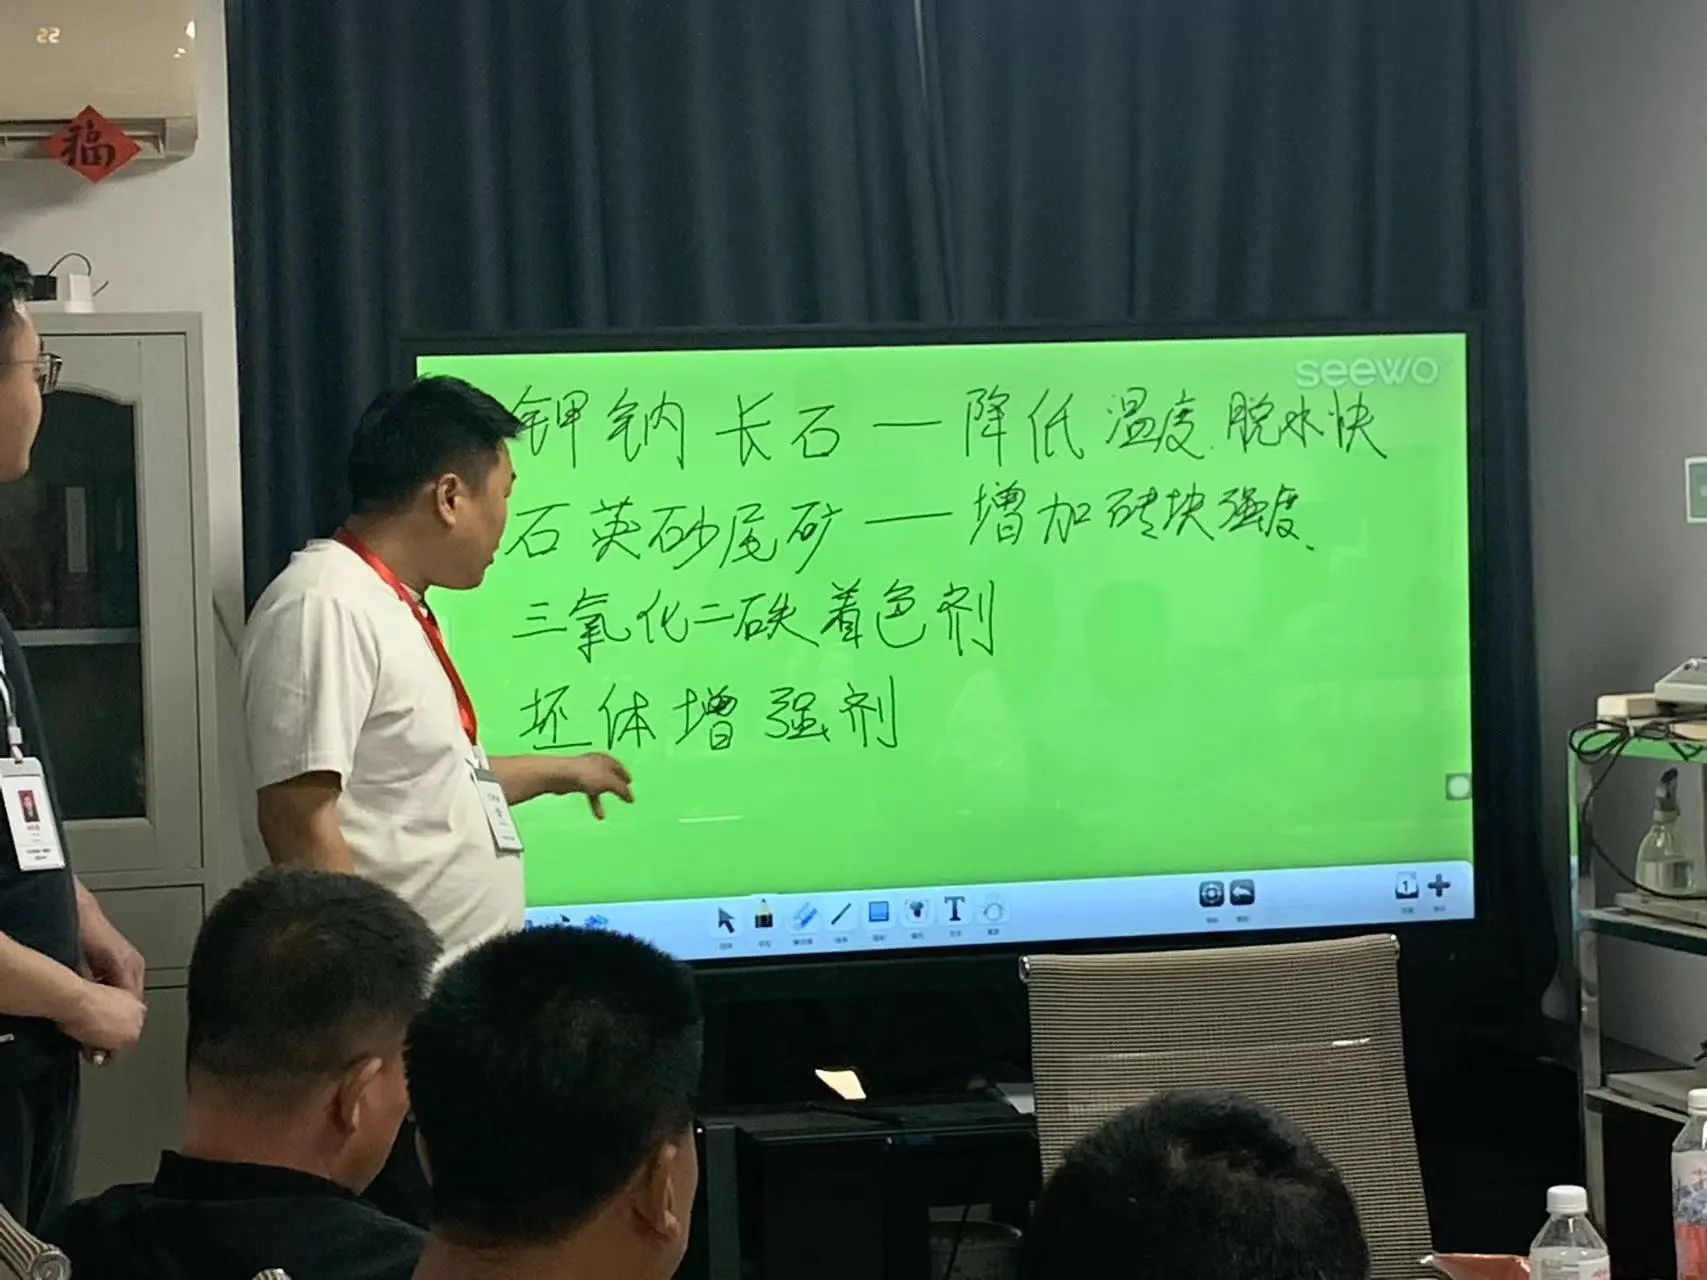 22
福
seewo
钾钠长石—降低温度.脱水快
石英砂尾矿—增加砖块强度.
三氧化二铁着色剂
坯体增强剂
T
1